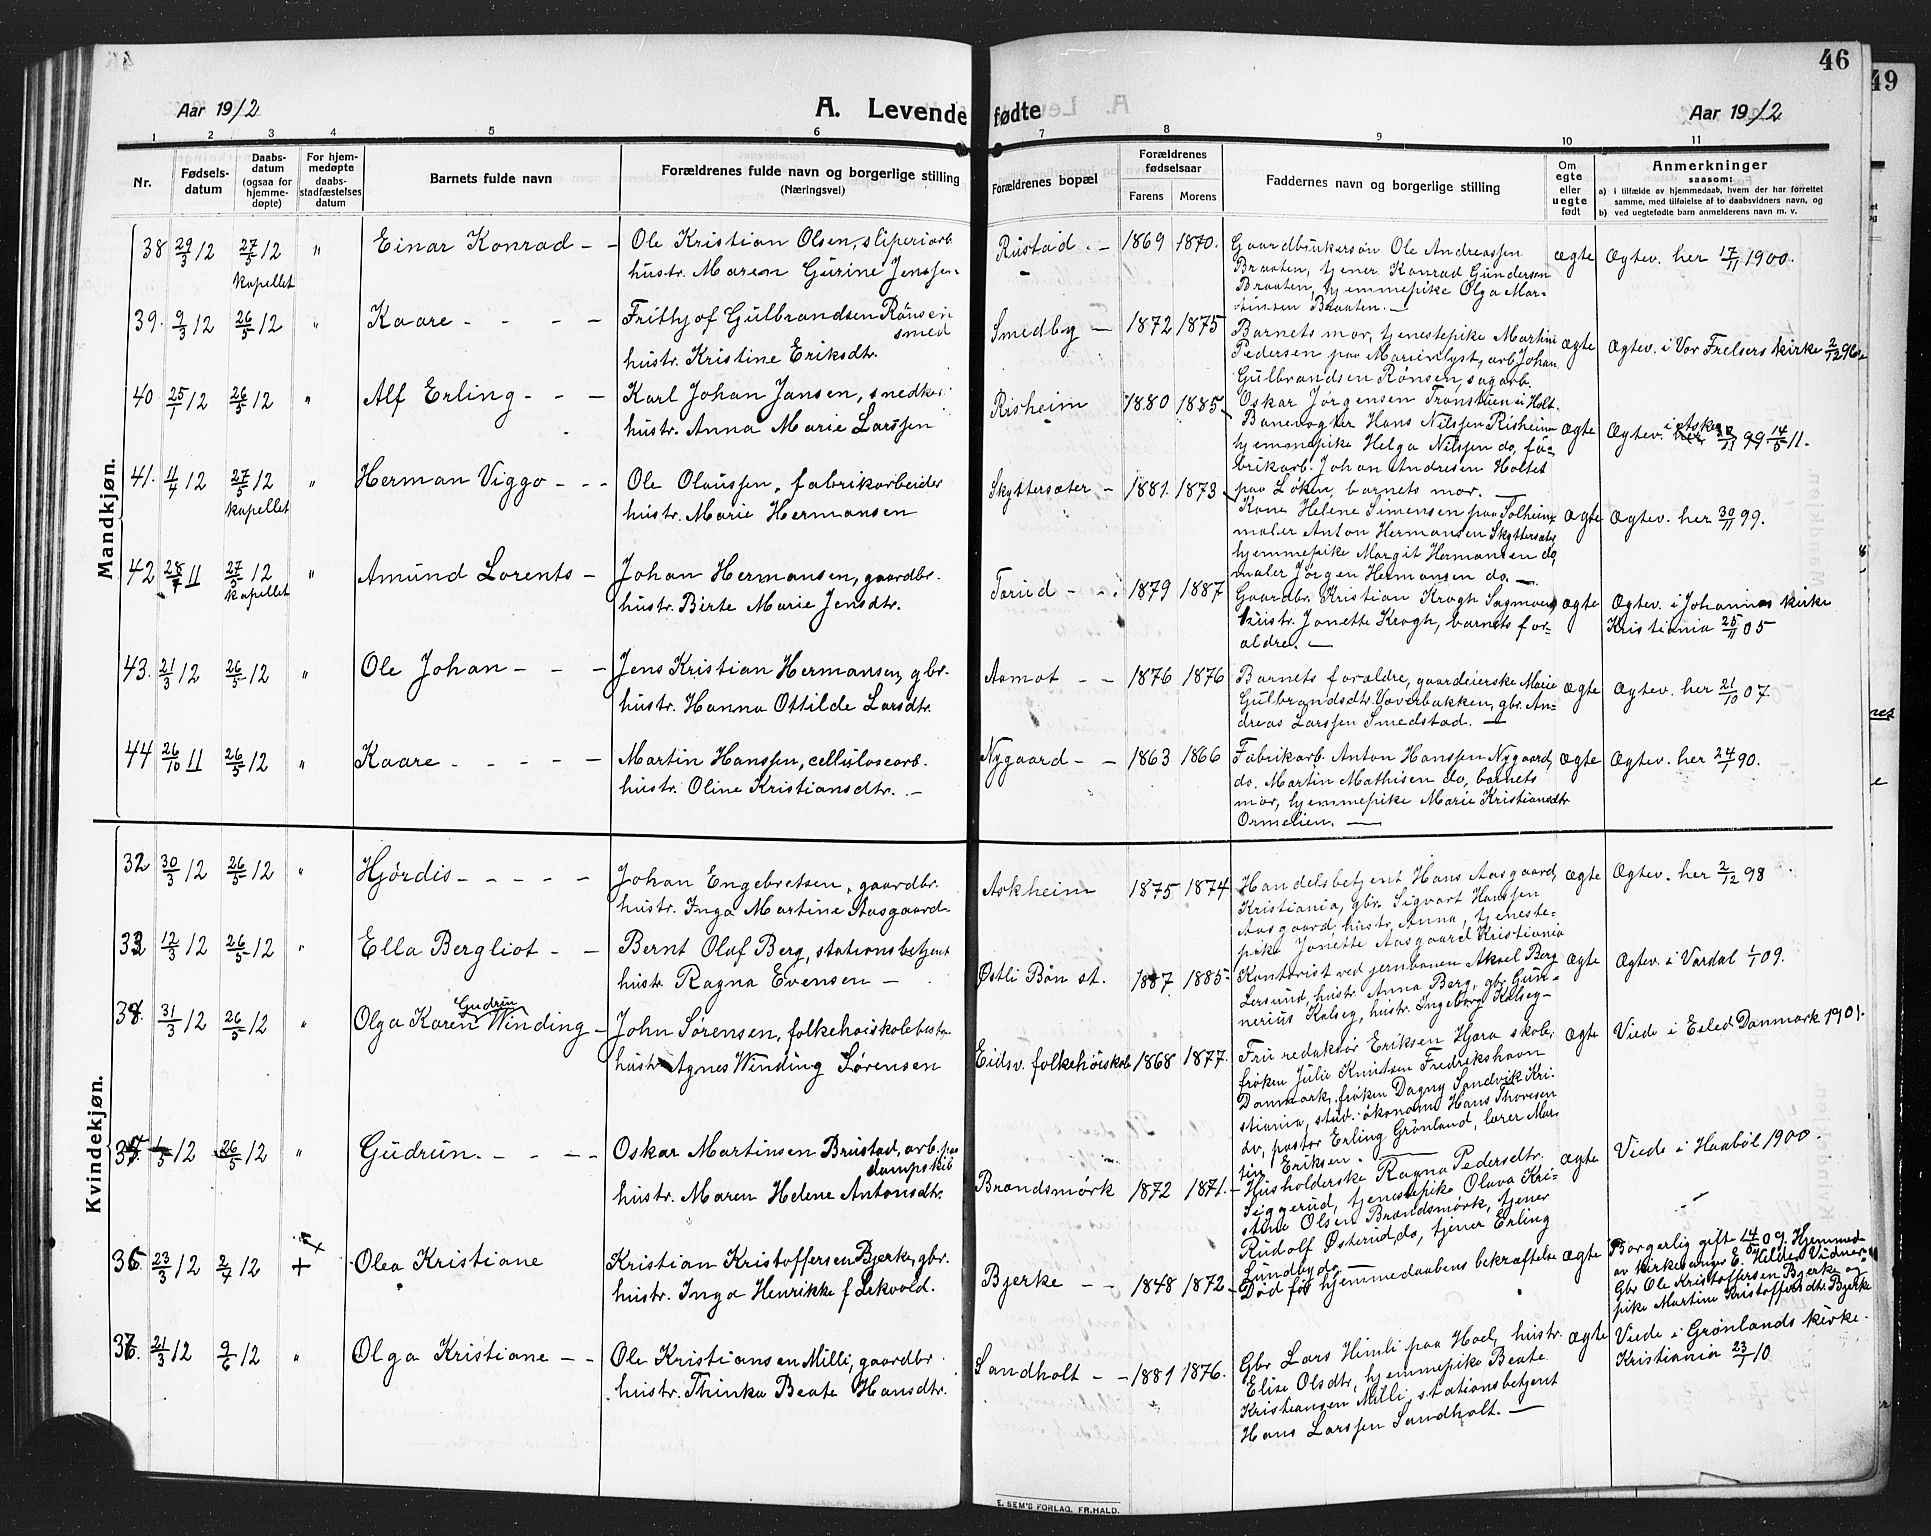 46
49
Aar 1912
A. Levende fødte
Aar 1912
1 2 3 4 5 6 7 8 9 10 11
Nr.
Fødsels-
datum
Daabs-
datum
(ogsaa for
hjemme-
døpte)
For hjem-
medøpte
daabs-
stadfæstelses
datum
Barnets fulde navn
Forældrenes fulde navn og borgerlige stilling
(Næringsvei)
Forældrenes bopæl
Forældrenes
fødselsaar
Farens Morens
Faddernes navn og borgerlige stilling
Om
egte
eller
uegte
født
Anmerkninger
saasom:
a) i tilfælde av hjemmedaab, hvem der har forrettet
samme, med tilføielse af to daabsvidners navn, og
b) ved uegtefødte barn anmelderens navn m. v.
Mandkjøn.
38 29/3 12 27/5 12 kapellet " Einar Konrad - -
Ole Kristian Olsen, sliperiarb.
hustr. Maren Gurine Jenssen.
Rustad. - 1869 1870.
Gaardbrukersøn Ole Andreassen
Braaten, tjener Konrad Gundersen
Braaten, hjemmepike Olga Mar-
tinsen Braaten. -
ægte Ægtev. her 17/11 1900.
39. 9/3 12 26/5 12 " Kaare - - - -
Frithjof Gulbrandsen Rønsen
smed
hustr. Kristine Eriksdtr.
Smedby - 1872 1875
Barnets mor, tjenestepike Martine
Pedersen paa Marienlyst, arb. Johan
Gulbrandsen Rønsen, sagarb.
Oskar Jørgensen Tronstuen i Holt.
ægte Ægtev. i Vor Frelsers kirke 2/12 96.
40 25/1 12 26/5 12 " Alf Erling - - -
Karl Johan Jansen, snedker
hustr. Anna Marie Larssen
Risheim 1880 1885
Banevogter Hans Nilssen Risheim
hjemmepike Helga Nilssen do, fa-
brikarb. Johan Andresen Holtet
paa Løken, barnets mor. -
ægte Ægtev. i Asker 14/5 11.
41. 4/4 12 27/5 12 kapellet " Herman Viggo - - -
Ole Olaussen, fabrikarbeider
hustr. Marie Hermansen
Skyttersæter - 1881. 1873
Kone Helene Simensen paa Solheim
maler Anton Hermansen Skyttersæter
hjemmepike Margit Hermansen do,
maler Jørgen Hermansen do. -
ægte Ægtev. her 30/11 99.
42 28/7 11 27/5 12 kapellet " Amund Lorents -
Johan Hermansen, gaardbr.
hustr. Birte Marie Jensdtr.
Torud - - 1879 1887
Gaardbr. Kristian Krogh Sagmoen,
hustr. Jonette Krogh, barnets for-
ældre. -
ægte Ægtev. i Johannes kirke
Kristiania 25/11 05
43. 21/3 12 26/5 12 " Ole Johan - - -
Jens Kristian Hermansen, gbr.
hustr. Hanna Ottilde Larsdtr.
Aamot - - 1876 1876
Barnets forældre, gaardeierske Marie
Gulbrandsdtr. Vaverbakken, gbr. An-
dreas Larssen Smedstad. -
ægte Ægtev. her 21/10 07.
44 26/10 11 26/5 12 " Kaare - - - - -
Martin Hanssen, cellulosearb.
hustr. Oline Kristiansdtr. -
Nygaard - - 1863 1866
Fabrikarb. Anton Hanssen Nygaard,
do. Martin Mathisen do, barnets
mor, hjemmepike Marie Kristiansdtr
Ormelien. -
ægte Ægtev. her 24/1 90.
Kvindekjøn.
32 30/3 12 26/5 12 " Hjørdis - - - - -
Johan Engebretsen, gaardbr.
hustr. Inga Martine Aasgaard.
Askheim 1875 1874
Handelsbetjent Hans Aasgaard,
Kristiania, gbr. Sigvart Hanssen
Aasgaard, hustr. Anna, tjeneste-
pike Jonette Aasgaard Kristiania
ægte Ægtev. her 2/12 98
33 12/3 12 26/5 12 " Ella Bergliot - -
Bernt Olaf Berg, stationsbetjent
hustr. Ragna Evensen -
Østli Bøn st. 1887 1885
Kontorist ved jernbanen Aksel Berg
Lersund, hustr. Anna Berg, gbr. Gun-
nerius Kalseg, hustr. Ingeborg Kalseg -
ægte Ægtev. i Vardal 1/1 09.
34. 31/3 12 26/5 12 " Olga Karen Gudrun Winding -
John Sørensen, folkehøiskolebest.
hustr. Agnes Winding Sørensen
Eidsv. folkehøiskole 1868 1877.
Fru redaktør Eriksen Hjøra skole,
frøken Julie Knutsen Fredrikshavn
Danmark, frøken Dagny Sandvik Kri-
stiania, stud. økonom. Hans Thoresen
do, pastor Erling Grønland, lærer Mar-
tin Eriksen. -
ægte Viede i Esled Danmark 1901.
35. 1/5 12 26/5 12 " Gudrun. - - - -
Oskar Martinsen Brustad, arb. paa
dampskib
hustr. Maren Helene Antonsdtr.
Brandsmørk 1872 1871.
Husholderske Ragna Pedersdtr.
Siggerud, tjenestepike Olava Kri-
stine Olsen Brandsmørk, tjener
Rudolf Østerud, do, tjener Erling
Lundby do. -
ægte Viede i Haabøl 1900.
36. 23/3 12 2/4 12 + Olea Kristiane
Kristian Kristoffersen Bjerke, gbr.
hustr. Inga Henrikke f. Lekvold.
Bjerke - - 1848 1872
Død før hjemmedaabens bekræftelse
ægte Borgerlig gifte 14/8 09. Hjemmed.
av kirkesanger E. Hilde. Vidner:
Gbr. Ole Kristoffersen Bjerke og
pike Martine Kristoffersdtr. Bjerke
37. 21/3 12 9/6 12 " Olga Kristiane - -
Ole Kristiansen Milli, gaardbr.
hustr. Thinka Beate Hansdtr.
Sandholt - - 1881 1876.
Gbr Lars Himli paa Hoel, hustr.
Elise Olsdtr, hjemmepike Beate
Kristiansen Milli, stationsbetjent
Hans Larssen Sandholt. -
ægte Viede i Grønlands kirke.
Kristiania 23/1 10
E. SEM'S FORLAG, FR.HALD.